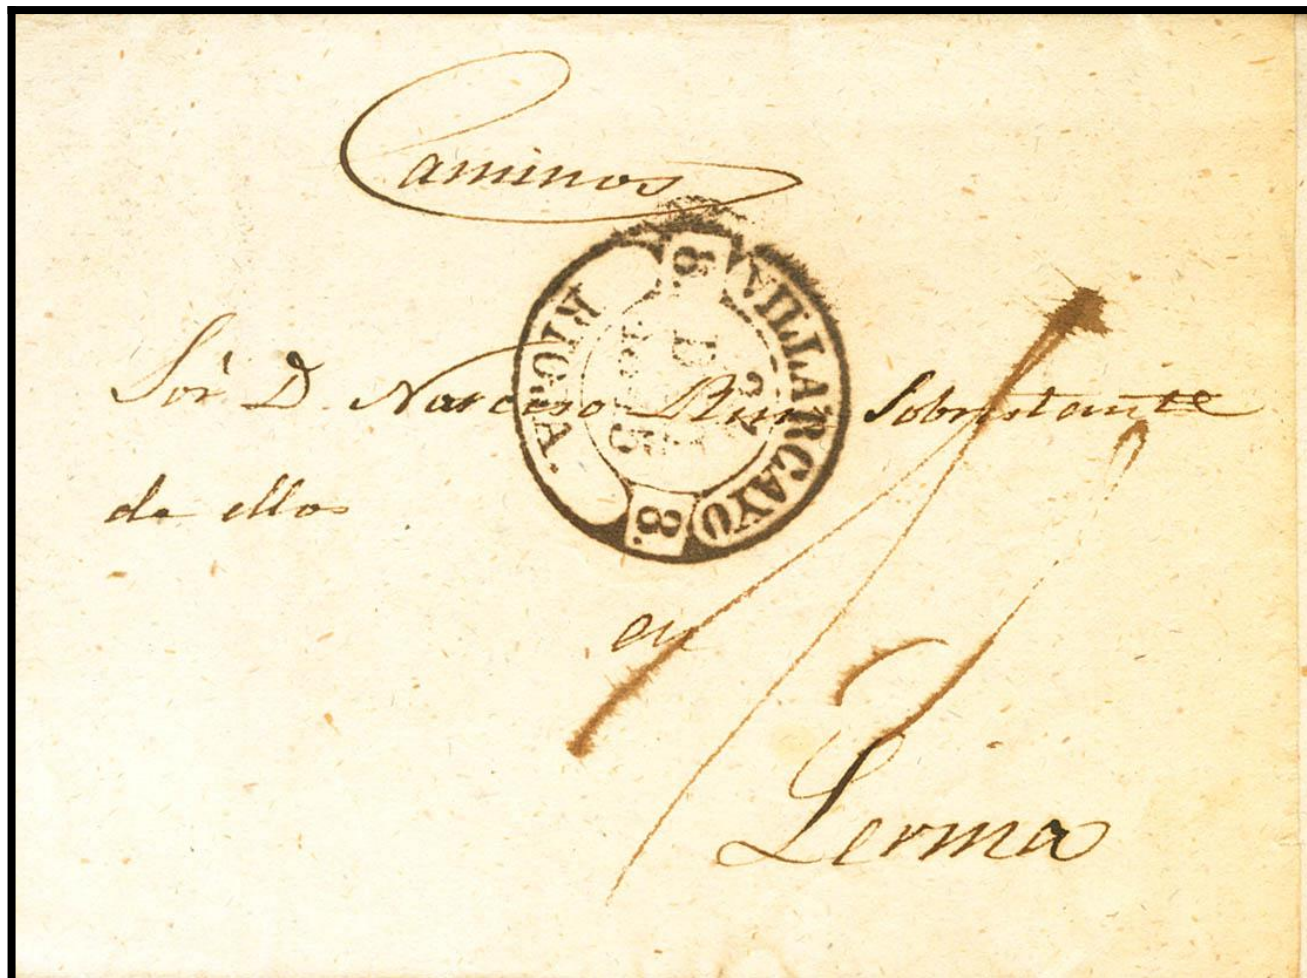 Caminos
8 VILLARCAYO 8
RIOJA.
Sor. D. Narciso Ruiz Sobrestante
de ellos
en
Lerma